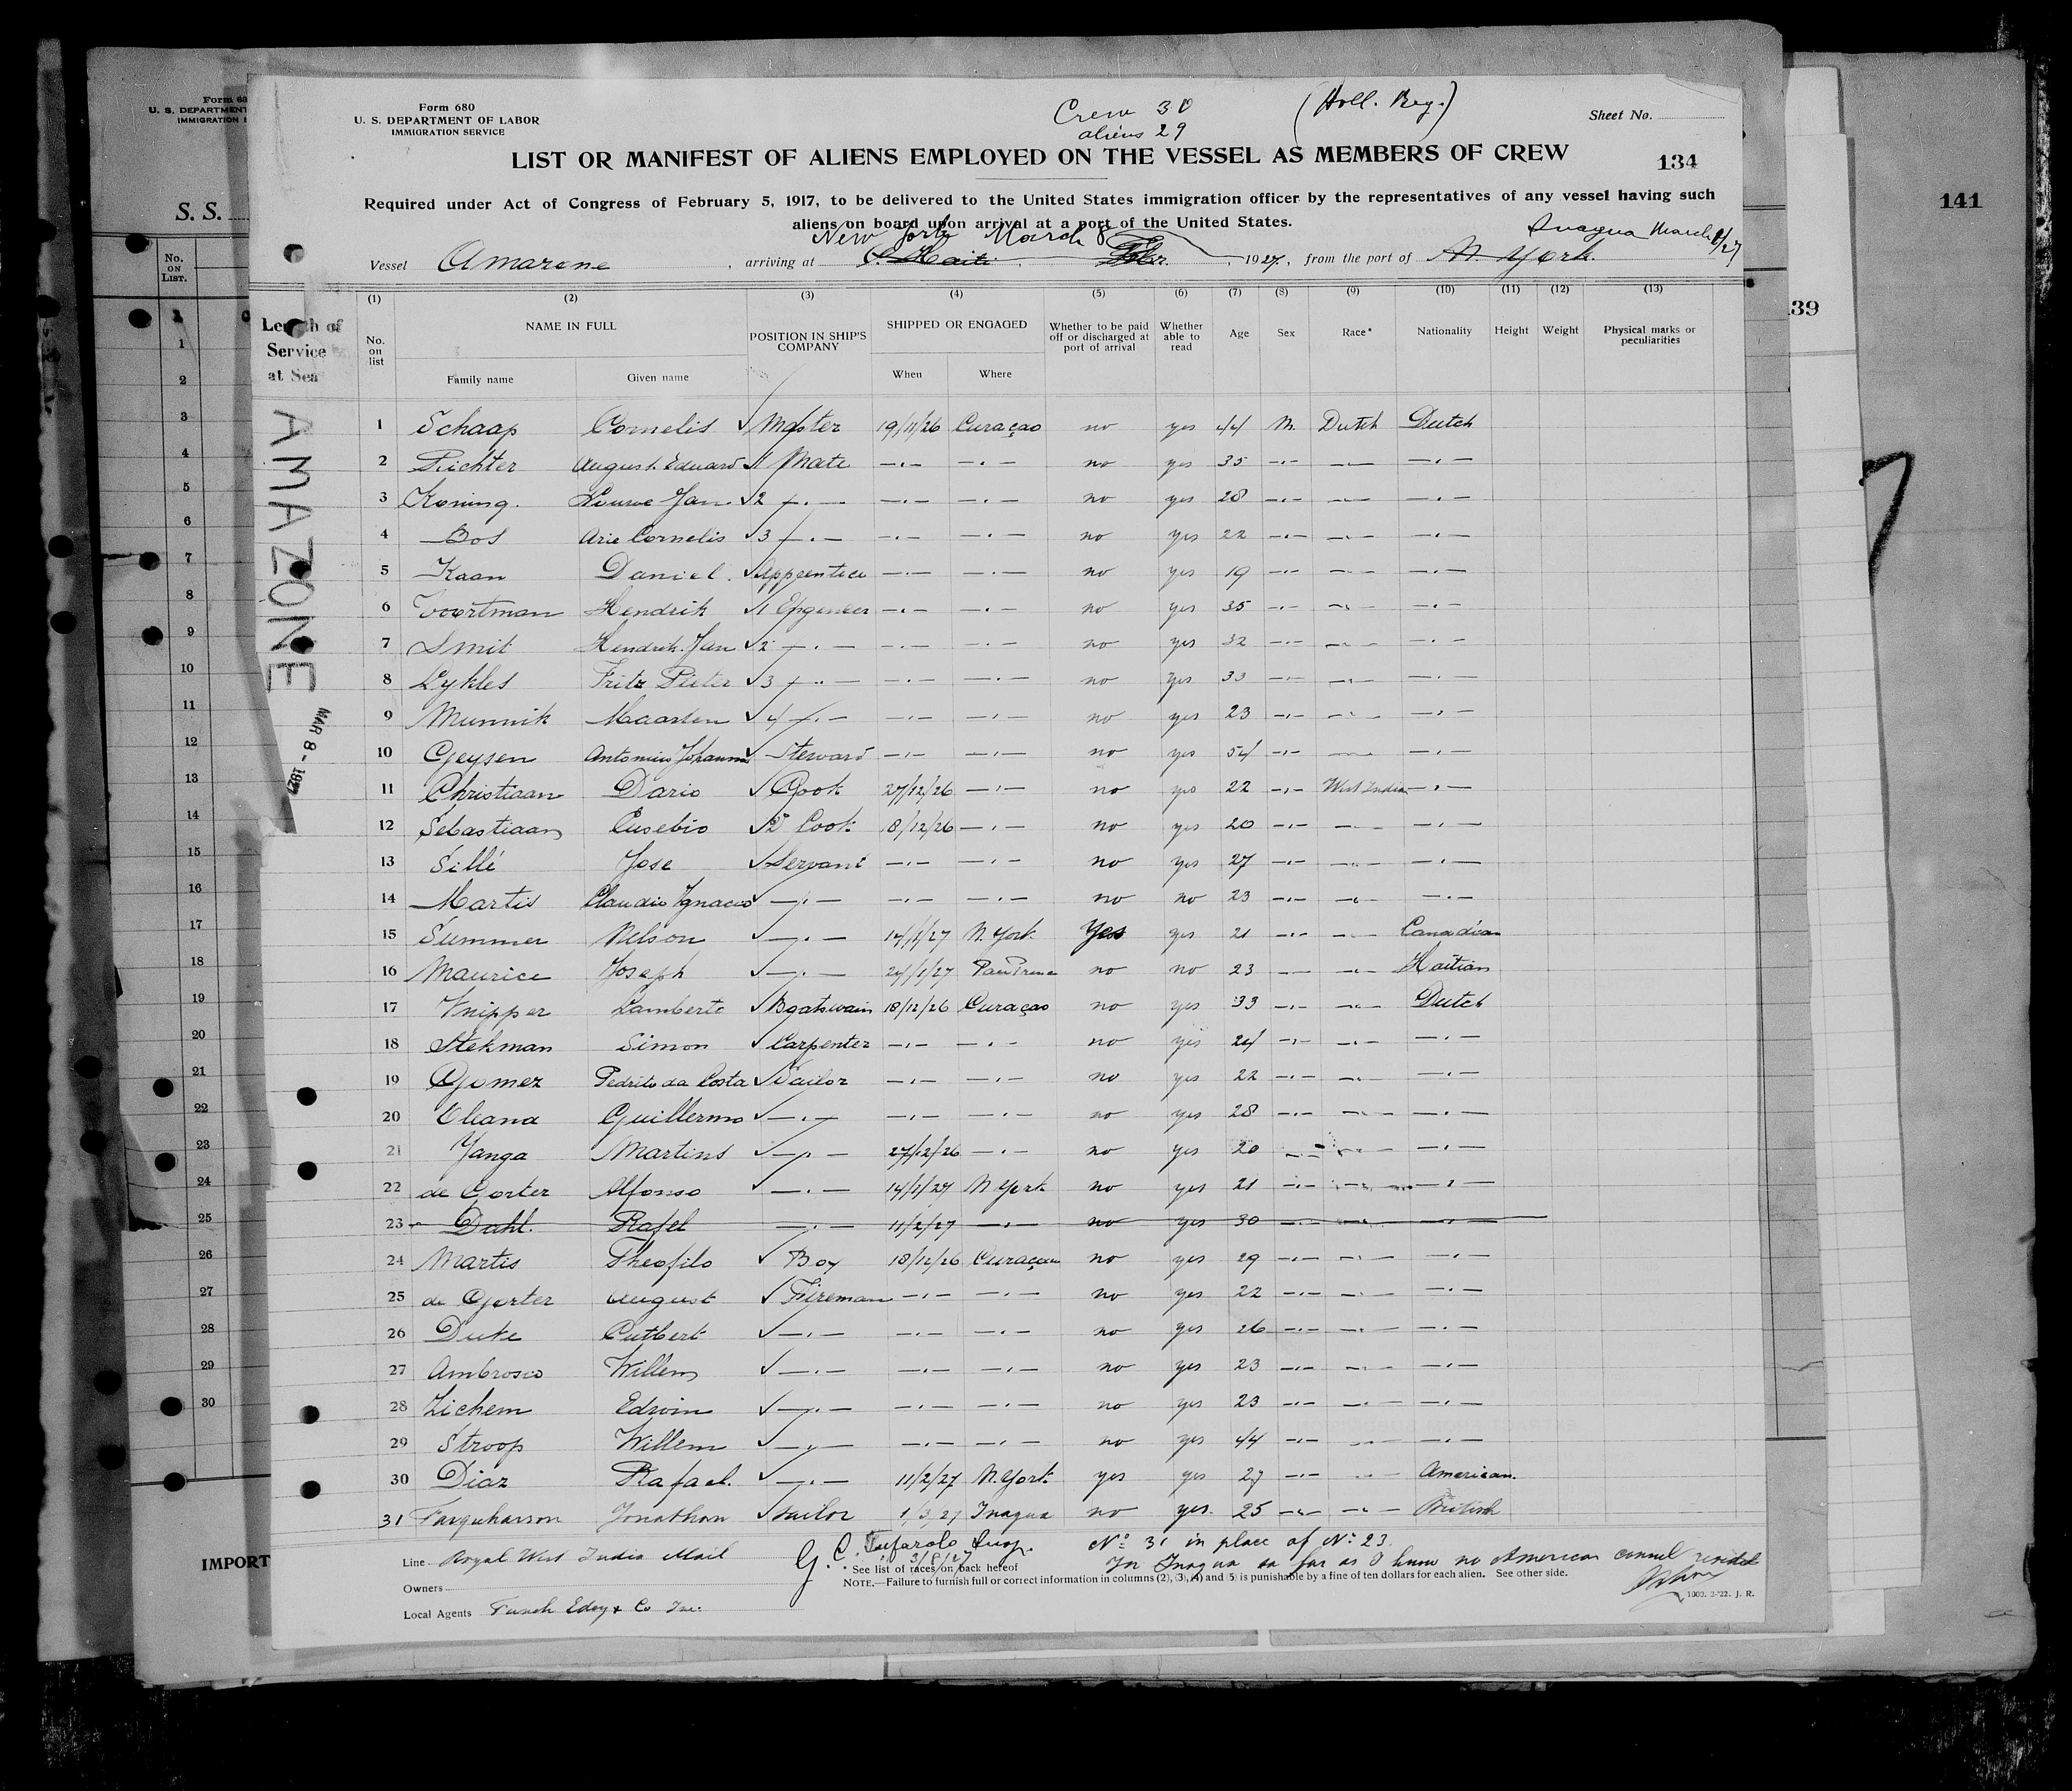 Form 680
U. S. DEPARTMENT OF LABOR
IMMIGRATION SERVICE
Crew 30
aliens 29
(Holl. Reg.)
Sheet No.
LIST OR MANIFEST OF ALIENS EMPLOYED ON THE VESSEL AS MEMBERS OF CREW
134
Required under Act of Congress of February 5, 1917, to be delivered to the United States immigration officer by the representatives of any vessel having such
aliens on board upon arrival at a port of the United States.
New York March 8 Inagua March 1/27
Vessel Amazone, arriving at Haiti, 1927, from the port of N. York.
(1) (2) (3) (4) (5) (6) (7) (8) (9) (10) (11) (12) (13)
Length of Service at Sea
No. on list NAME IN FULL POSITION IN SHIP'S COMPANY SHIPPED OR ENGAGED Whether to be paid off or discharged at port of arrival Whether able to read Age Sex Race* Nationality Height Weight Physical marks or peculiarities
Family name Given name When Where
AMAZONE
MAR 8 - 1927
1 Schaap Cornelis √ Master 19/11/26 Curaçao no yes 44 M. Dutch Dutch
2 Richter August Eduard √ 1 Mate —·— —·— no yes 35 —·— —·— —·—
3 Koning Douwe Jan √ 2 —·— —·— —·— no yes 28 —·— —·— —·—
4 Bos Arie Cornelis √ 3 —·— —·— —·— no yes 22 —·— —·— —·—
5 Kaan Daniel. √ Apprentice —·— —·— no yes 19 —·— —·— —·—
6 Voortman Hendrik √ 1 Engineer —·— —·— no yes 35 —·— —·— —·—
7 Smit Hendrik Jan √ 2 —·— —·— —·— no yes 32 —·— —·— —·—
8 Lykles Fritz Pieter √ 3 —·— —·— —·— no yes 33 —·— —·— —·—
9 Munnik Maarten √ 4 —·— —·— —·— no yes 23 —·— —·— —·—
10 Geysen Antonius Johannes √ Steward —·— —·— no yes 54 —·— —·— —·—
11 Christiaan Dario √ Cook 27/12/26 —·— no yes 22 —·— West Indian —·—
12 Sebastiaan Eusebio √ 2e Cook 18/12/26 —·— no yes 20 —·— —·— —·—
13 Sillé Jose √ Servant —·— —·— no yes 27 —·— —·— —·—
14 Martis Claudio Ignacio √ —·— —·— —·— no no 23 —·— —·— —·—
15 Summer Nelson √ —·— 14/1/27 N. York Yes yes 21 —·— —·— Canadian
16 Maurice Joseph √ —·— 24/1/27 no no 23 —·— —·— Haitian
17 Knipper Lamberto √ Boatswain 18/12/26 Curaçao no yes 33 —·— —·— Dutch
18 Stekman Simon √ Carpenter —·— —·— no yes 24 —·— —·— —·—
19 Gomez Pedrito da Costa √ Sailor —·— —·— no yes 22 —·— —·— —·—
20 Oleana Guillermo √ —·— —·— —·— no yes 28 —·— —·— —·—
21 Janga Martins √ —·— 27/12/26 —·— no yes 20 —·— —·— —·—
22 de Gorter Alfonso √ —·— 14/1/27 N. York no yes 21 —·— —·— —·—
23 Dahl. Rafel —·— 11/2/27 —·— no yes 30 —·— —·— —·—
24 Martis Theofilo √ Boy 18/12/26 Curaçao no yes 29 —·— —·— —·—
25 de Gorter August √ Fireman —·— —·— no yes 22 —·— —·— —·—
26 Duke Cutbert √ —·— —·— —·— no yes 26 —·— —·— —·—
27 Ambrosio Willem √ —·— —·— —·— no yes 23 —·— —·— —·—
28 Zichem Edwin √ —·— —·— —·— no yes 23 —·— —·— —·—
29 Stroop Willem √ —·— —·— —·— no yes 44 —·— —·— —·—
30 Diaz Rafael. √ —·— 11/2/27 N. York yes yes 27 —·— —·— American.
31 Farquharson Jonathan √ Sailor 1/3/27 Inagua no yes. 25 —·— —·— British
Line Royal West India Mail
G. C. Tufarolo Insp. 3/8/27
No 31 in place of No 23
In Inagua so far as I know no American consul resided
Owners
* See list of races on back hereof
NOTE.—Failure to furnish full or correct information in columns (2), (3), (4) and (5) is punishable by a fine of ten dollars for each alien. See other side.
Local Agents Funch Edey & Co Inc.
1003. 3-'22. J. R.
Form 68
U. S. DEPARTMENT
IMMIGRATION
S. S.
No. ON LIST.
1
1
2
3
4
5
6
7
8
9
10
11
12
13
14
15
16
17
18
19
20
21
22
23
24
25
26
27
28
29
30
IMPORT
141
139